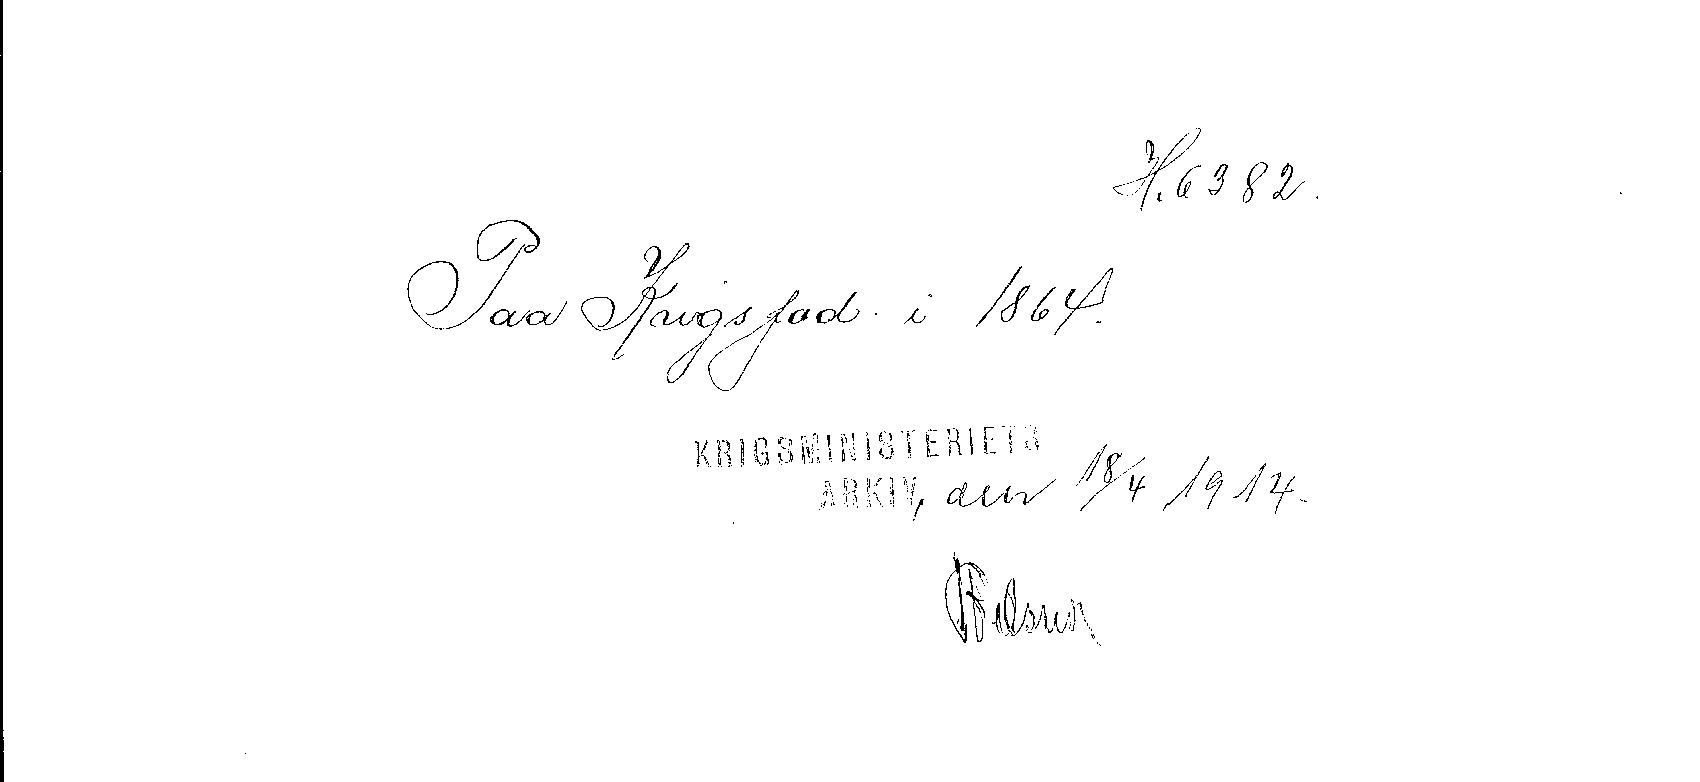 H. 6382.
Paa Krigsfod. i 1864.
KRIGSMINISTERIETS
ARKIV, den 18/4 1914.